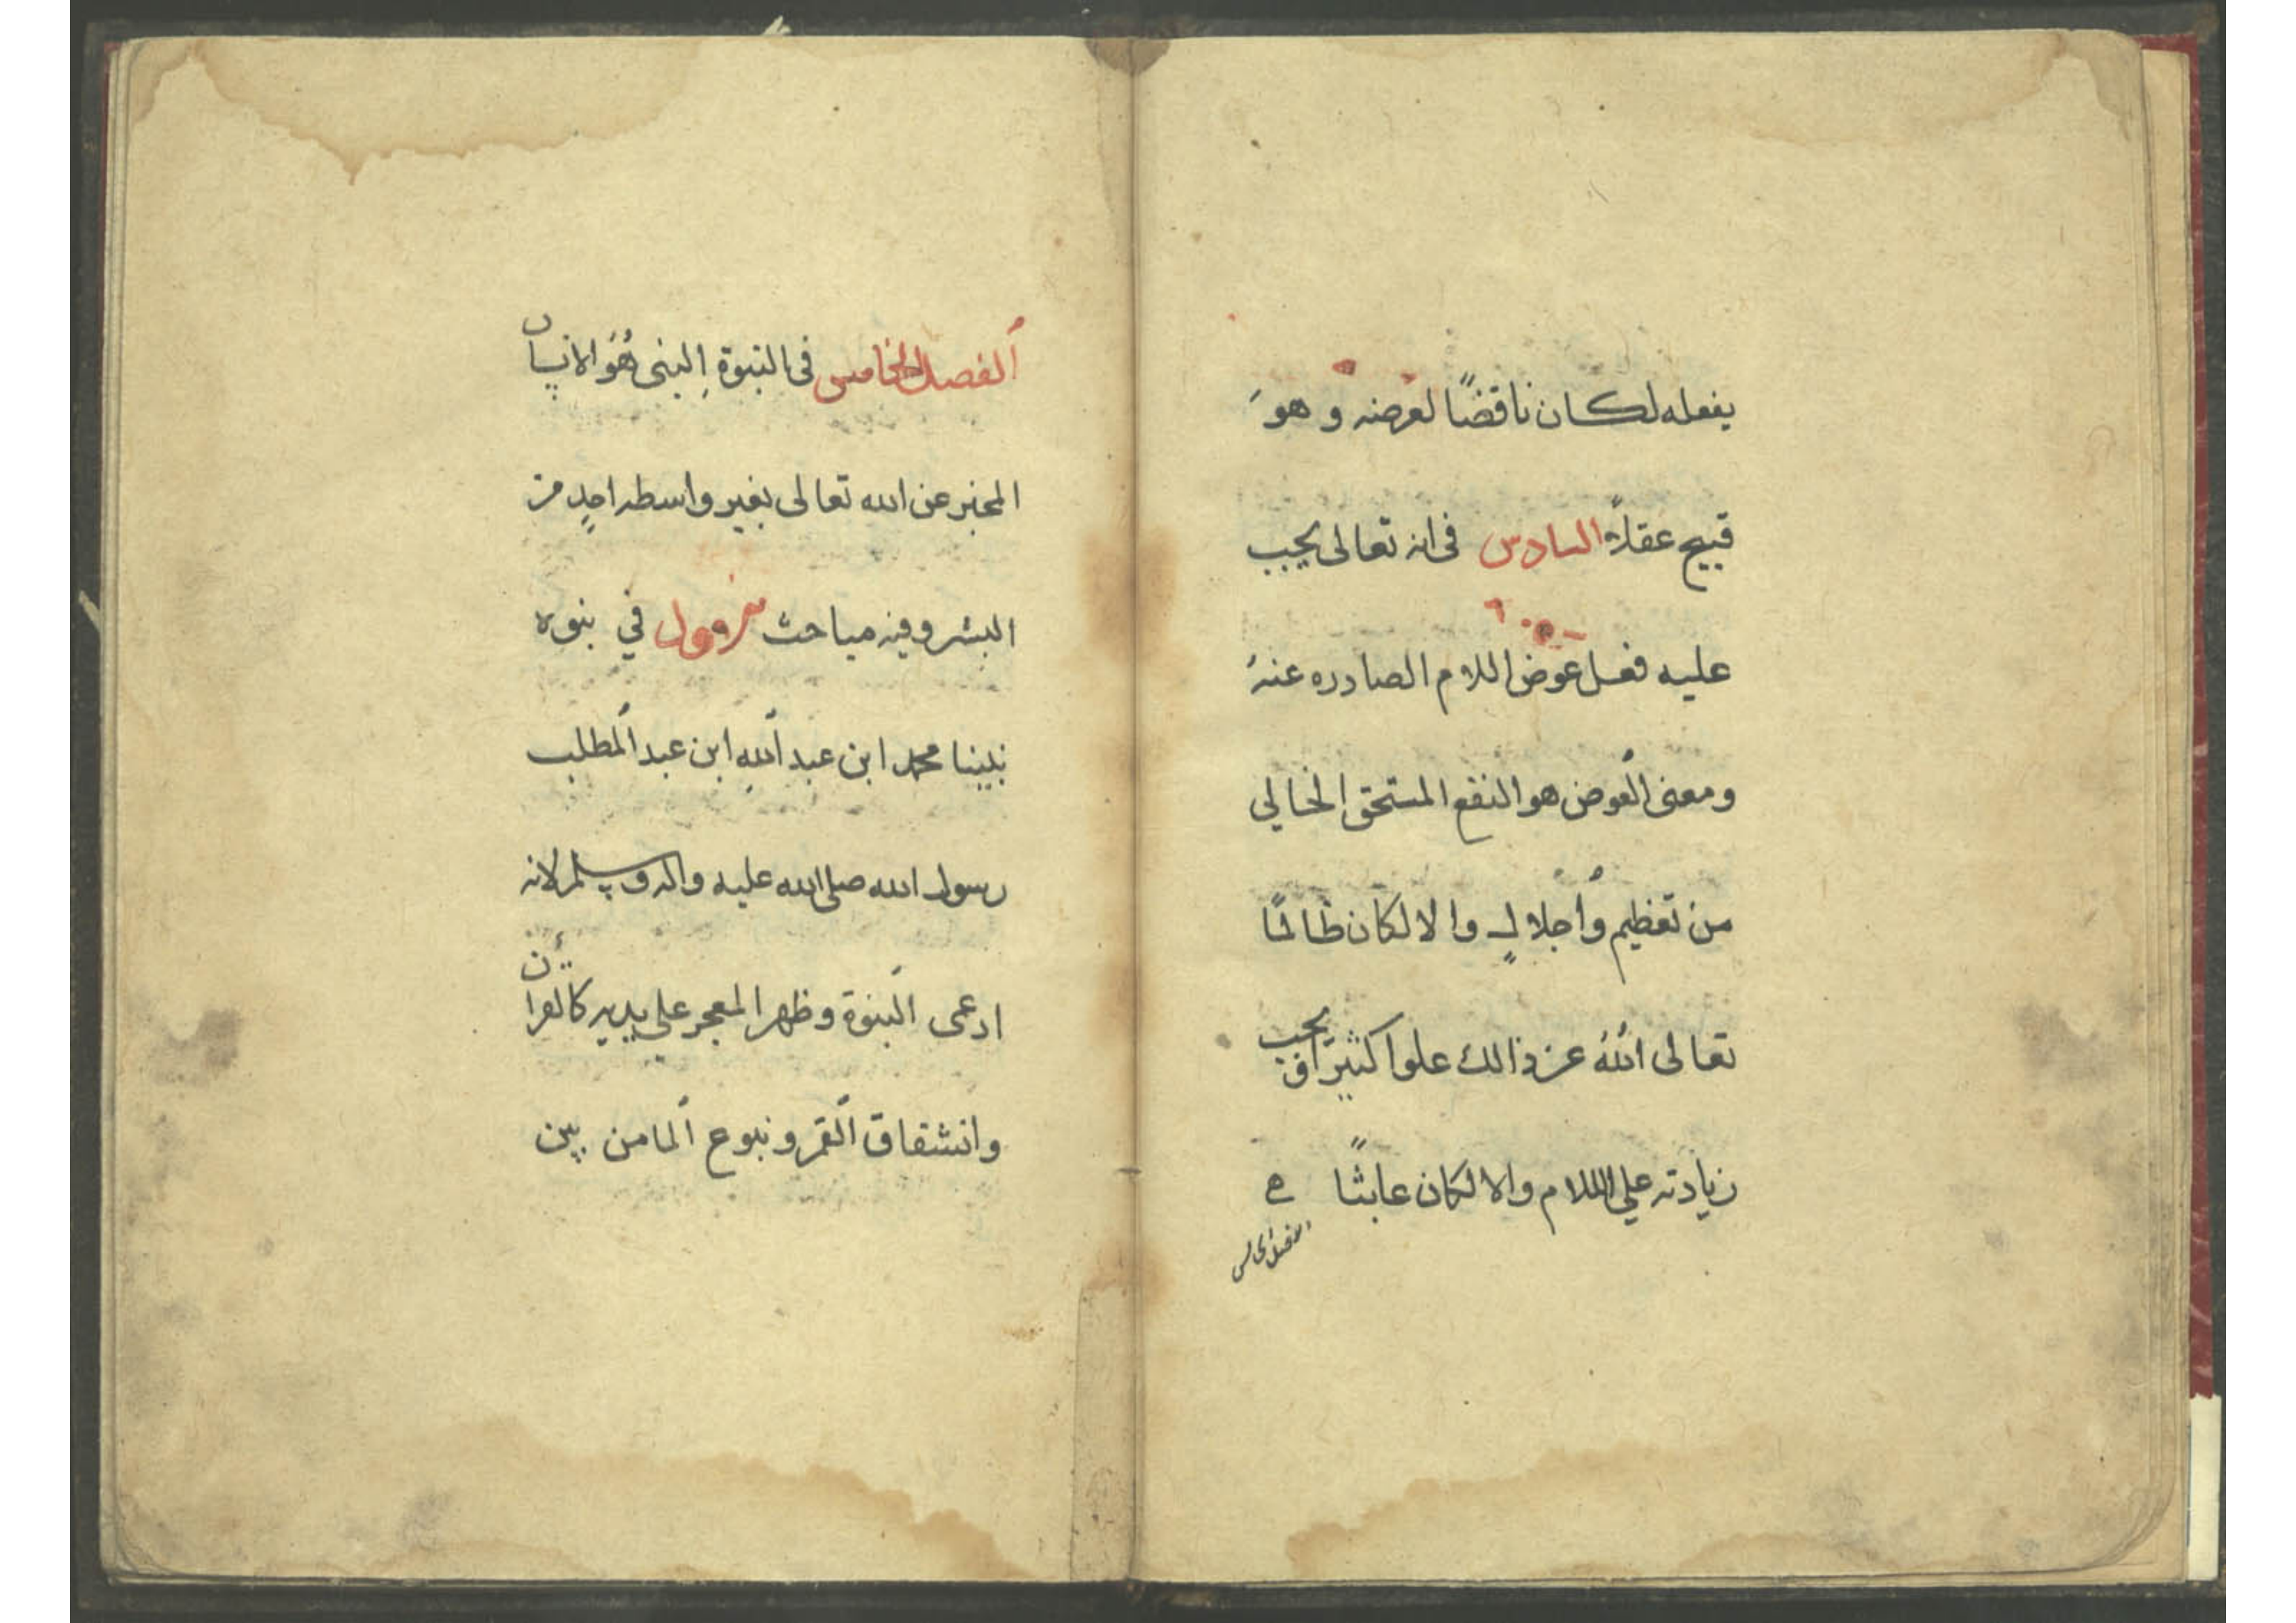 يفعله لكان ناقضًا لغرضه و هوَ
قبيح عقلاً السادس فى انه تعالى يجب
عليه فعل عوض اللام الصادره عنهُ
ومعنى العوض هو النفع المستحق الخالي
من تعظيم وأجلالٍ والا لكان ظالمًا
تعالى اللهُ عن ذالك علوا كثيرًا ويجب
زيادته علي اللام والا لكان عابثًا
الفصل الخامس
ألفصل الخامس فى النبوة النبى هُوَ الانسان
المخبر عن الله تعالى بغير واسطه احدٍ من
البشر و فيه مباحث الاول في نبوه
نبينا محمد ابن عبد اللهِ ابن عبد المطلب
رسول الله صلى الله عليه واله وسلم لانه
ادعى النبوة و ظهر المعجز علي يديه كالقرأن
وانشقاق القمر و نبوع الما من بين